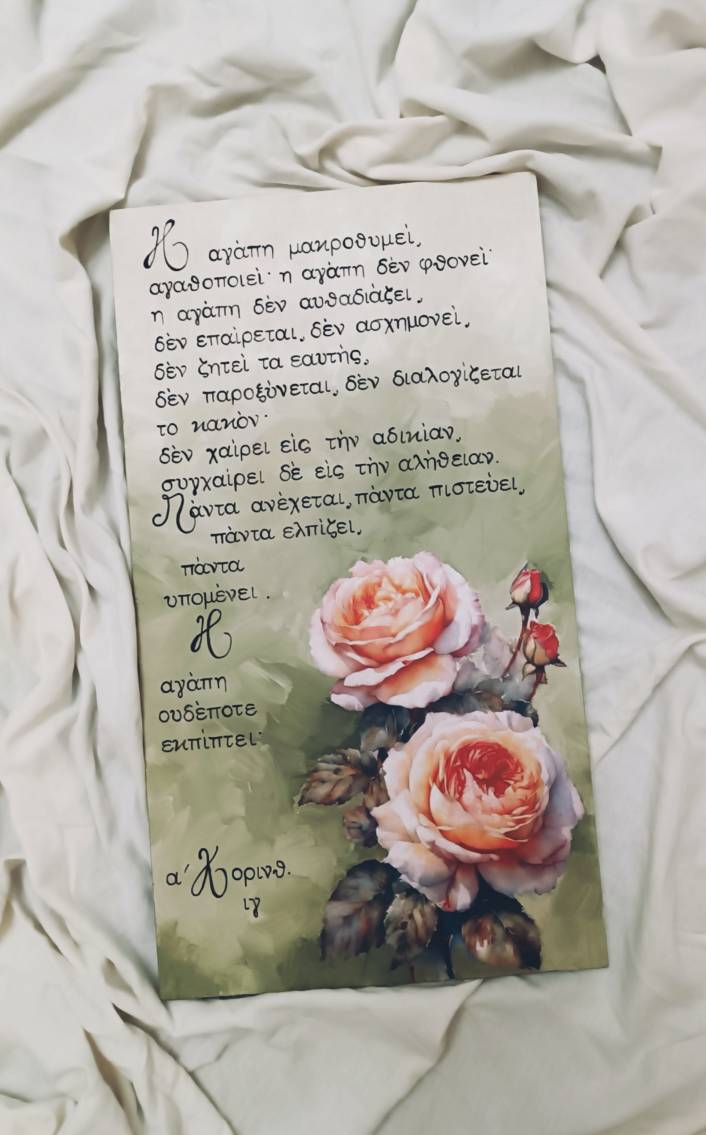 Η αγὰπη μακροθυμεὶ,
αγαθοποιεὶ· η αγὰπη δὲν φθονεὶ·
η αγὰπη δὲν αυθαδιὰζει,
δὲν επαὶρεται, δὲν ασχημονεὶ,
δὲν ζητεὶ τα εαυτὴς,
δὲν παροξὺνεται, δὲν διαλογὶζεται
το κακὸν·
δὲν χαὶρει εὶς τὴν αδικὶαν,
συγχαὶρει δὲ εὶς τὴν αλὴθειαν.
Πὰντα ανὲχεται, πὰντα πιστεὺει,
πὰντα ελπὶζει,
πὰντα
υπομὲνει.
Η
αγὰπη
ουδὲποτε
εκπὶπτει·
α΄ Κορινθ.
ιγ